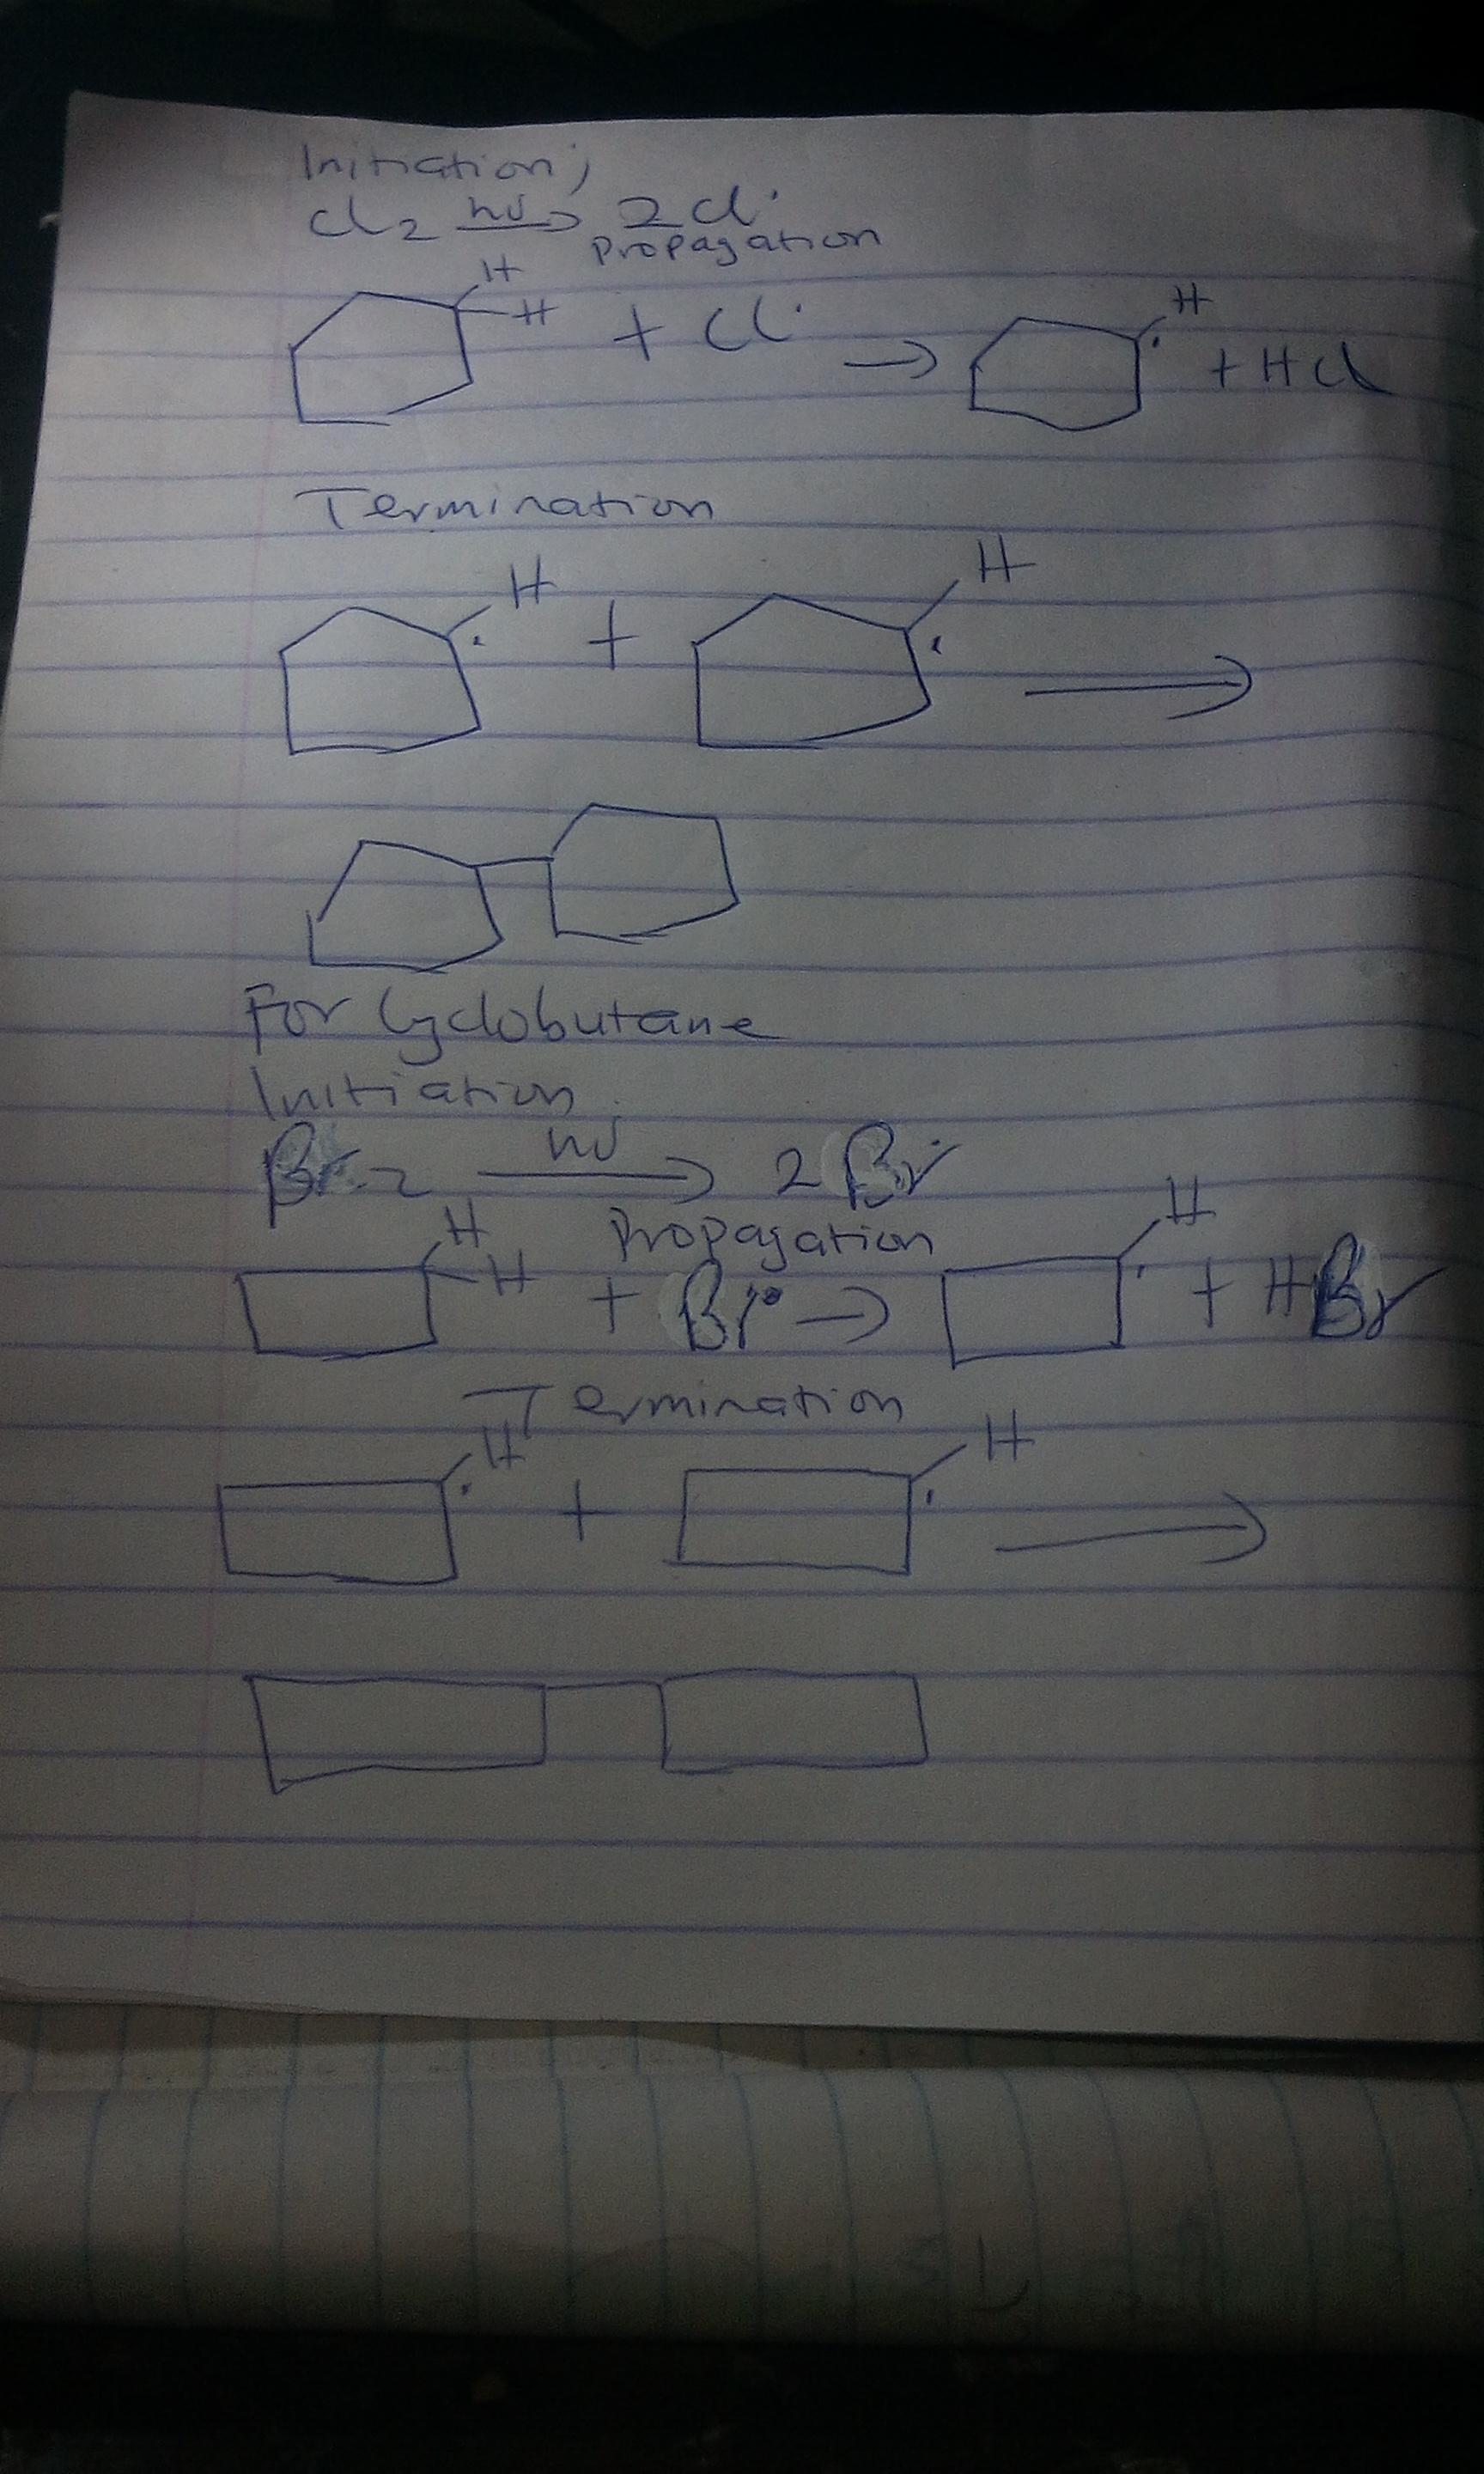 Initiation;
Cl2 hν → 2Cl·
Propagation
H
H + Cl· → H · + HCl
Termination
H · + H · →
For Cyclobutane
Initiation.
Br2 hν → 2Br·
Propagation
H
H + Br· → H · + HBr
Termination
H · + H · →